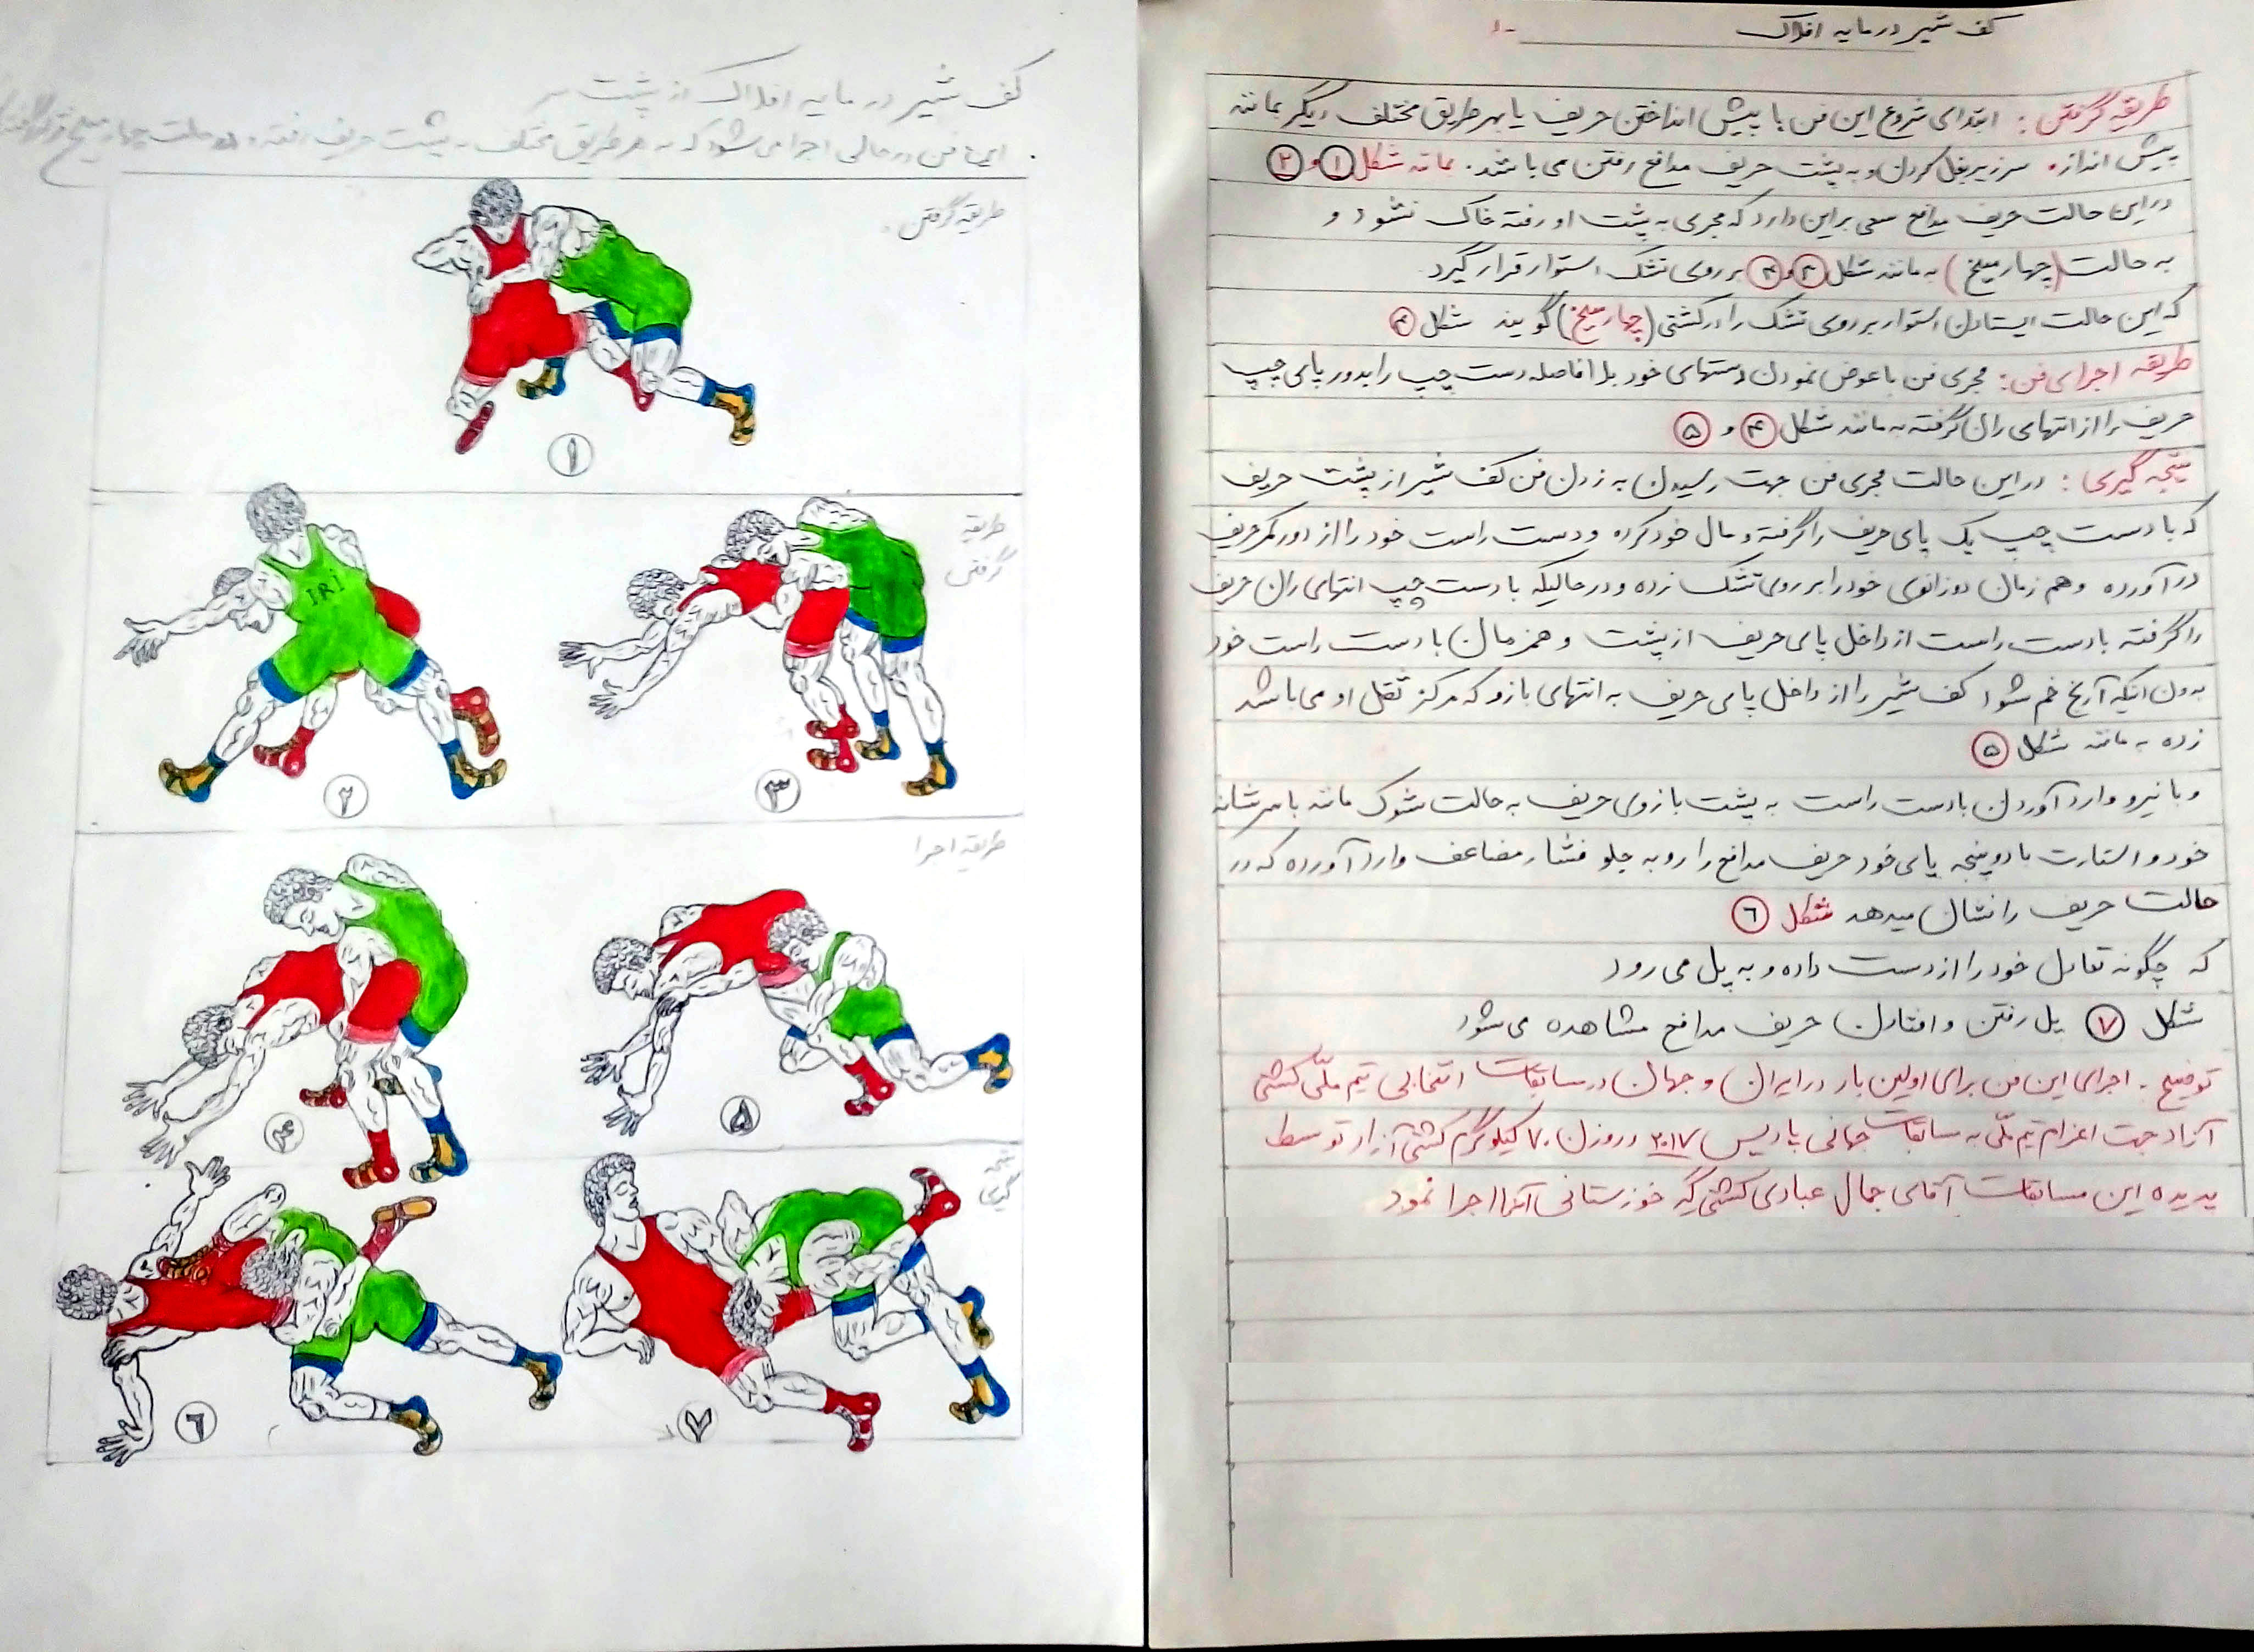 کف شیر در مایه افلاک
طریقه گرفتن: ابتدای شروع این فن با پیش انداختن حریف یا بهر طریق مختلف دیگر بمانند
پیش انداز. سر زیر بغل کردن و به پشت حریف مدافع رفتن می باشد. مانند شکل ۱ و ۲
در این حالت حریف مدافع سعی بر این دارد که مجری به پشت او رفته خاک نشود و
به حالت (چهار میخ) به مانند شکل ۳ و ۴ بر روی تشک استوار قرار گیرد.
که این حالت ایستادن استوار بر روی تشک را در کشتی (چهار میخ) گویند شکل ۴
طریقه اجرای فن: مجری فن با عوض نمودن دستهای خود بلافاصله دست چپ را بدور پای چپ
حریف را از انتهای ران گرفته به مانند شکل ۴ و ۵
نتیجه گیری: در این حالت مجری فن جهت رسیدن به زدن فن کف شیر از پشت حریف
که با دست چپ یک پای حریف را گرفته و مال خود کرده و دست راست خود را از دور کمر حریف
در آورده و هم زمان دو زانوی خود را بر روی تشک زده و در حالیکه با دست چپ انتهای ران حریف
را گرفته با دست راست از داخل پای حریف از پشت و همزمان با دست راست خود
بدون اینکه آرنج خم شود کف شیر را از داخل پای حریف به انتهای بازو که مرکز ثقل او می باشد
زده به مانند شکل ۵
و با نیرو وارد آوردن با دست راست به پشت بازوی حریف به حالت شوک مانند با سر شانه
خود و استارت با دو پنجه پای خود حریف مدافع را رو به جلو فشار مضاعف وارد آورده که در
حالت حریف را نشان میدهد شکل ۶
که چگونه تعادل خود را از دست داده و به پل می رود
شکل ۷ پل رفتن و افتادن حریف مدافع مشاهده می شود
توضیح. اجرای این فن برای اولین بار در ایران و جهان در مسابقات انتخابی تیم ملّی کشتی
آزاد جهت اعزام تیم ملّی به مسابقات جهانی پاریس ۲۰۱۷ در وزن ۷۰ کیلوگرم کشتی آزاد توسط
پدیده این مسابقات آقای جمال عبادی کشتی گیر خوزستانی آنرا اجرا نمود
کف شیر در مایه افلاک از پشت سر
این فن در حالی اجرا می شود که به هر طریق مختلف به پشت حریف رفته، در حالت چهار میخ قرار
طریقه گرفتن.
۱
طریقه
گرفتن
۲
IRI
۳
طریقه اجرا
۴
۵
نتیجه
گیری
۶
۷